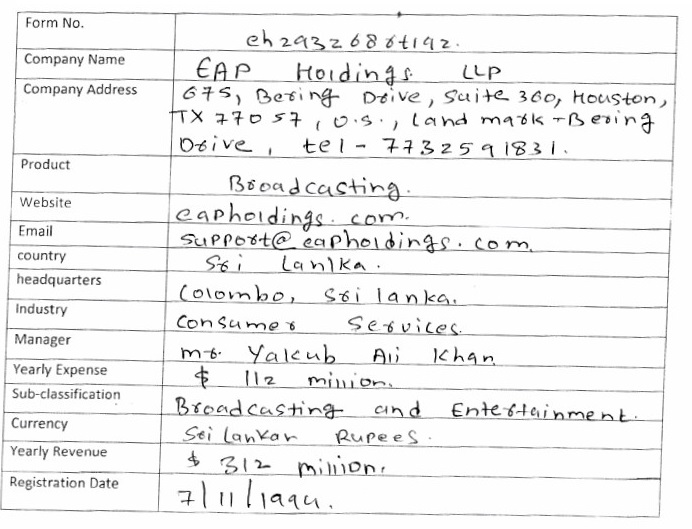 Form No. eh29326866t192.
Company Name EAP Holdings LLP
Company Address 675, Bering Drive, Suite 360, Houston,
TX 77057, U.S., Land mark - Bering
Drive, tel - 7732591831.
Product Broadcasting.
Website eapholdings.com.
Email support@eapholdings.com.
country Sri Lanka.
headquarters Colombo, Sri lanka.
Industry Consumer Services.
Manager mr. Yakub Ali Khan
Yearly Expense $ 112 million.
Sub-classification Broadcasting and Entertainment.
Currency Sri Lankan Rupees.
Yearly Revenue $ 312 million.
Registration Date 7/11/1994.